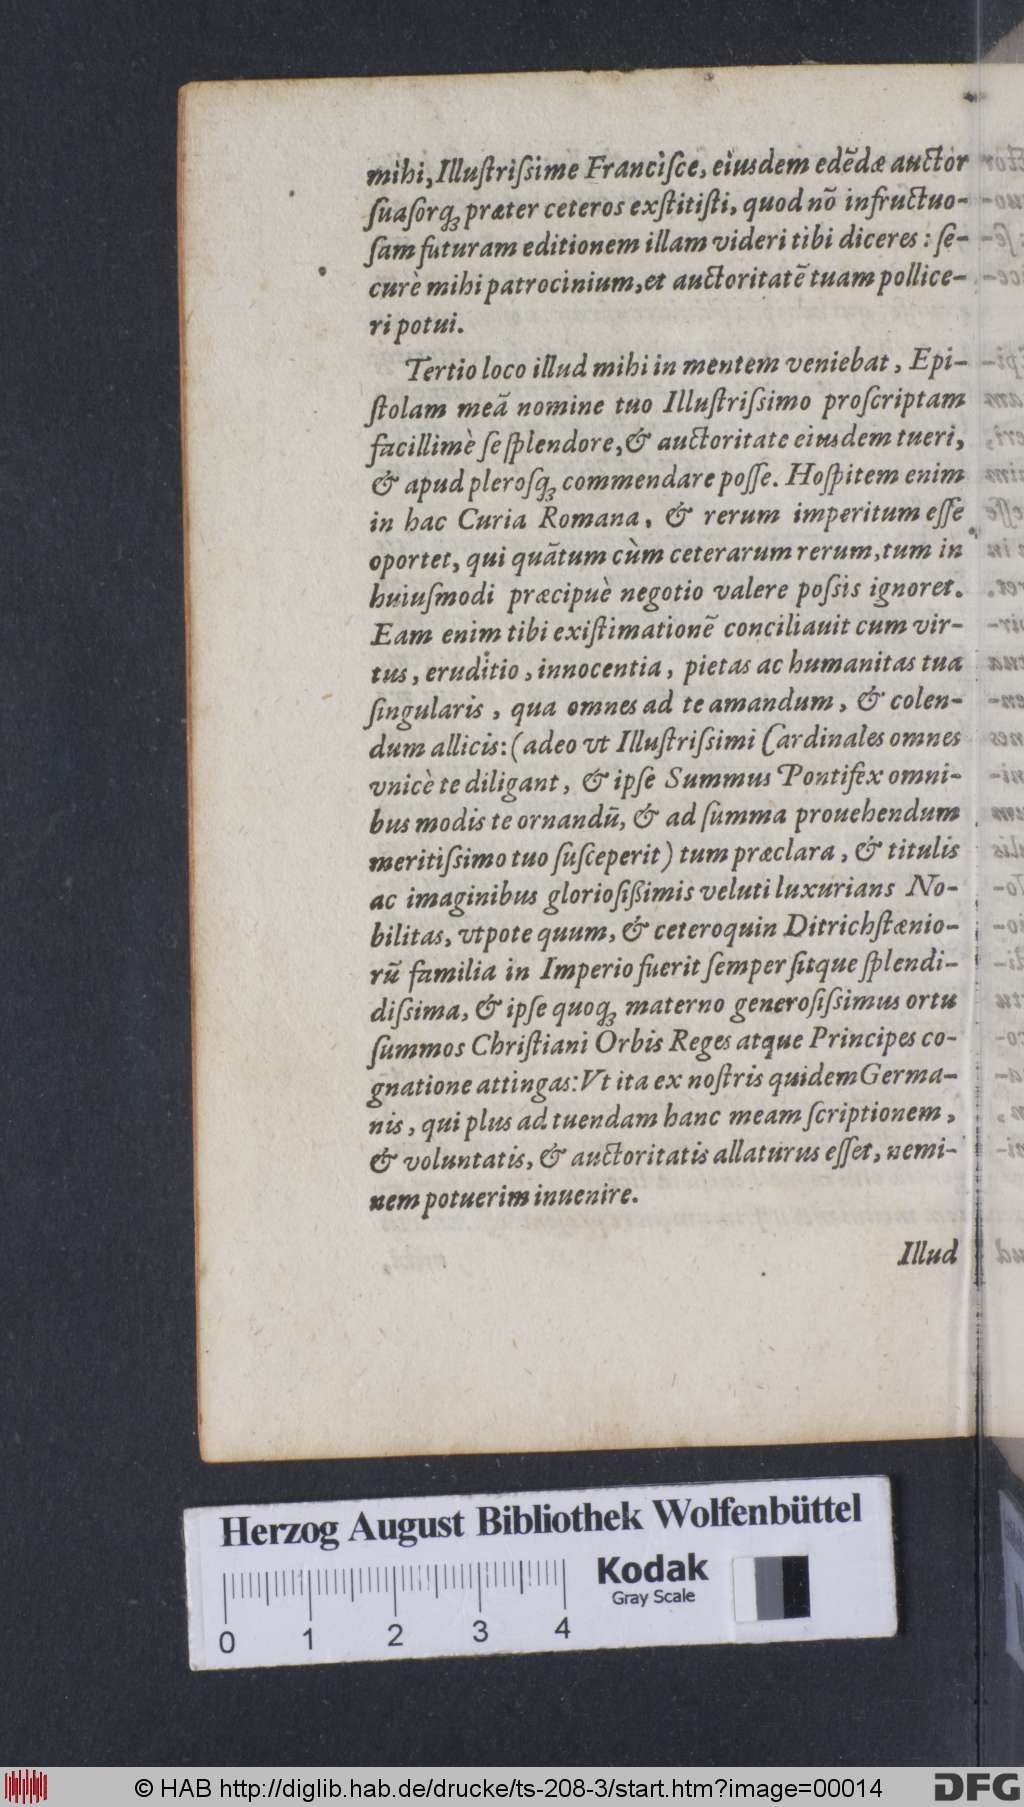 mihi, Illuſtriſsime Franciſce, eiusdem edẽdæ auctor
ſuaſorq́ꝫ præter ceteros exſtitiſti, quod nõ infructuo-
ſam futuram editionem illam videri tibi diceres : ſe-
curè mihi patrocinium, et auctoritatẽ tuam pollice-
ri potui.
Tertio loco illud mihi in mentem veniebat, Epi-
ſtolam meã nomine tuo Illuſtriſsimo proſcriptam
facillimè ſe ſplendore, & auctoritate eiusdem tueri,
& apud pleroſqꝫ commendare poſſe. Hoſpitem enim
in hac Curia Romana, & rerum imperitum eſſe
oportet, qui quãtum cùm ceterarum rerum, tum in
huiuſmodi præcipuè negotio valere poſsis ignoret.
Eam enim tibi exiſtimationẽ conciliauit cum vir-
tus, eruditio, innocentia, pietas ac humanitas tua
ſingularis, qua omnes ad te amandum, & colen-
dum allicis: (adeo vt Illuſtriſsimi Cardinales omnes
vnicè te diligant, & ipſe Summus Pontifex omni-
bus modis te ornandũ, & ad ſumma prouehendum
meritiſsimo tuo ſuſceperit) tum præclara, & titulis
ac imaginibus glorioſißimis veluti luxurians No-
bilitas, vtpote quum, & ceteroquin Ditrichſtænio-
rũ familia in Imperio fuerit ſemper ſitque ſplendi-
diſsima, & ipſe quoqꝫ materno generoſiſsimus ortu
ſummos Chriſtiani Orbis Reges atque Principes co-
gnatione attingas: Vt ita ex noſtris quidem Germa-
nis, qui plus ad tuendam hanc meam ſcriptionem,
& voluntatis, & auctoritatis allaturus eſſet, nemi-
nem potuerim inuenire.
Illud
Herzog August Bibliothek Wolfenbüttel
Kodak
Gray Scale
0 1 2 3 4
© HAB http://diglib.hab.de/drucke/ts-208-3/start.htm?image=00014
DFG